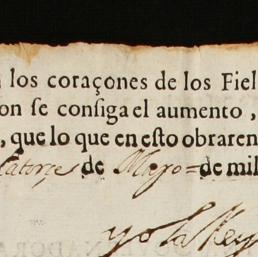 los coraçones de los Fiel
on se consiga el aumento,
, que lo que en esto obraren
Catorçe de Mayo = de mil
yo la Rey